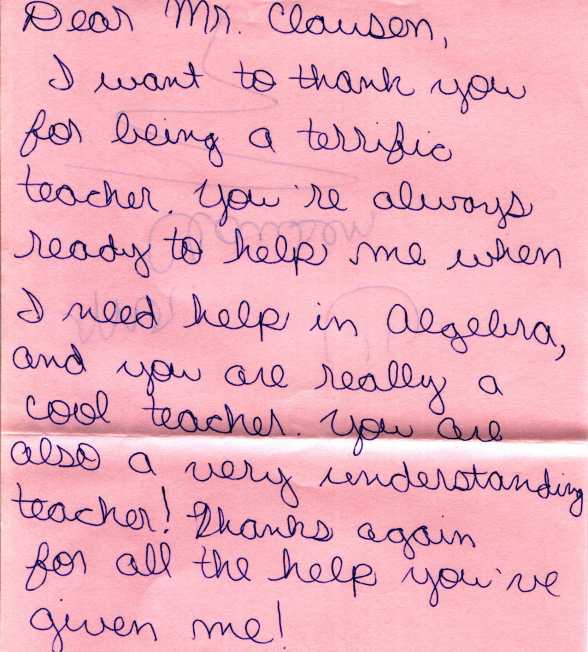 Dear Mr. Clausen,
I want to thank you
for being a terrific
teacher. You're always
ready to help me when
I need help in Algebra,
and you are really a
cool teacher. You are
also a very understanding
teacher! Thanks again
for all the help you've
given me!